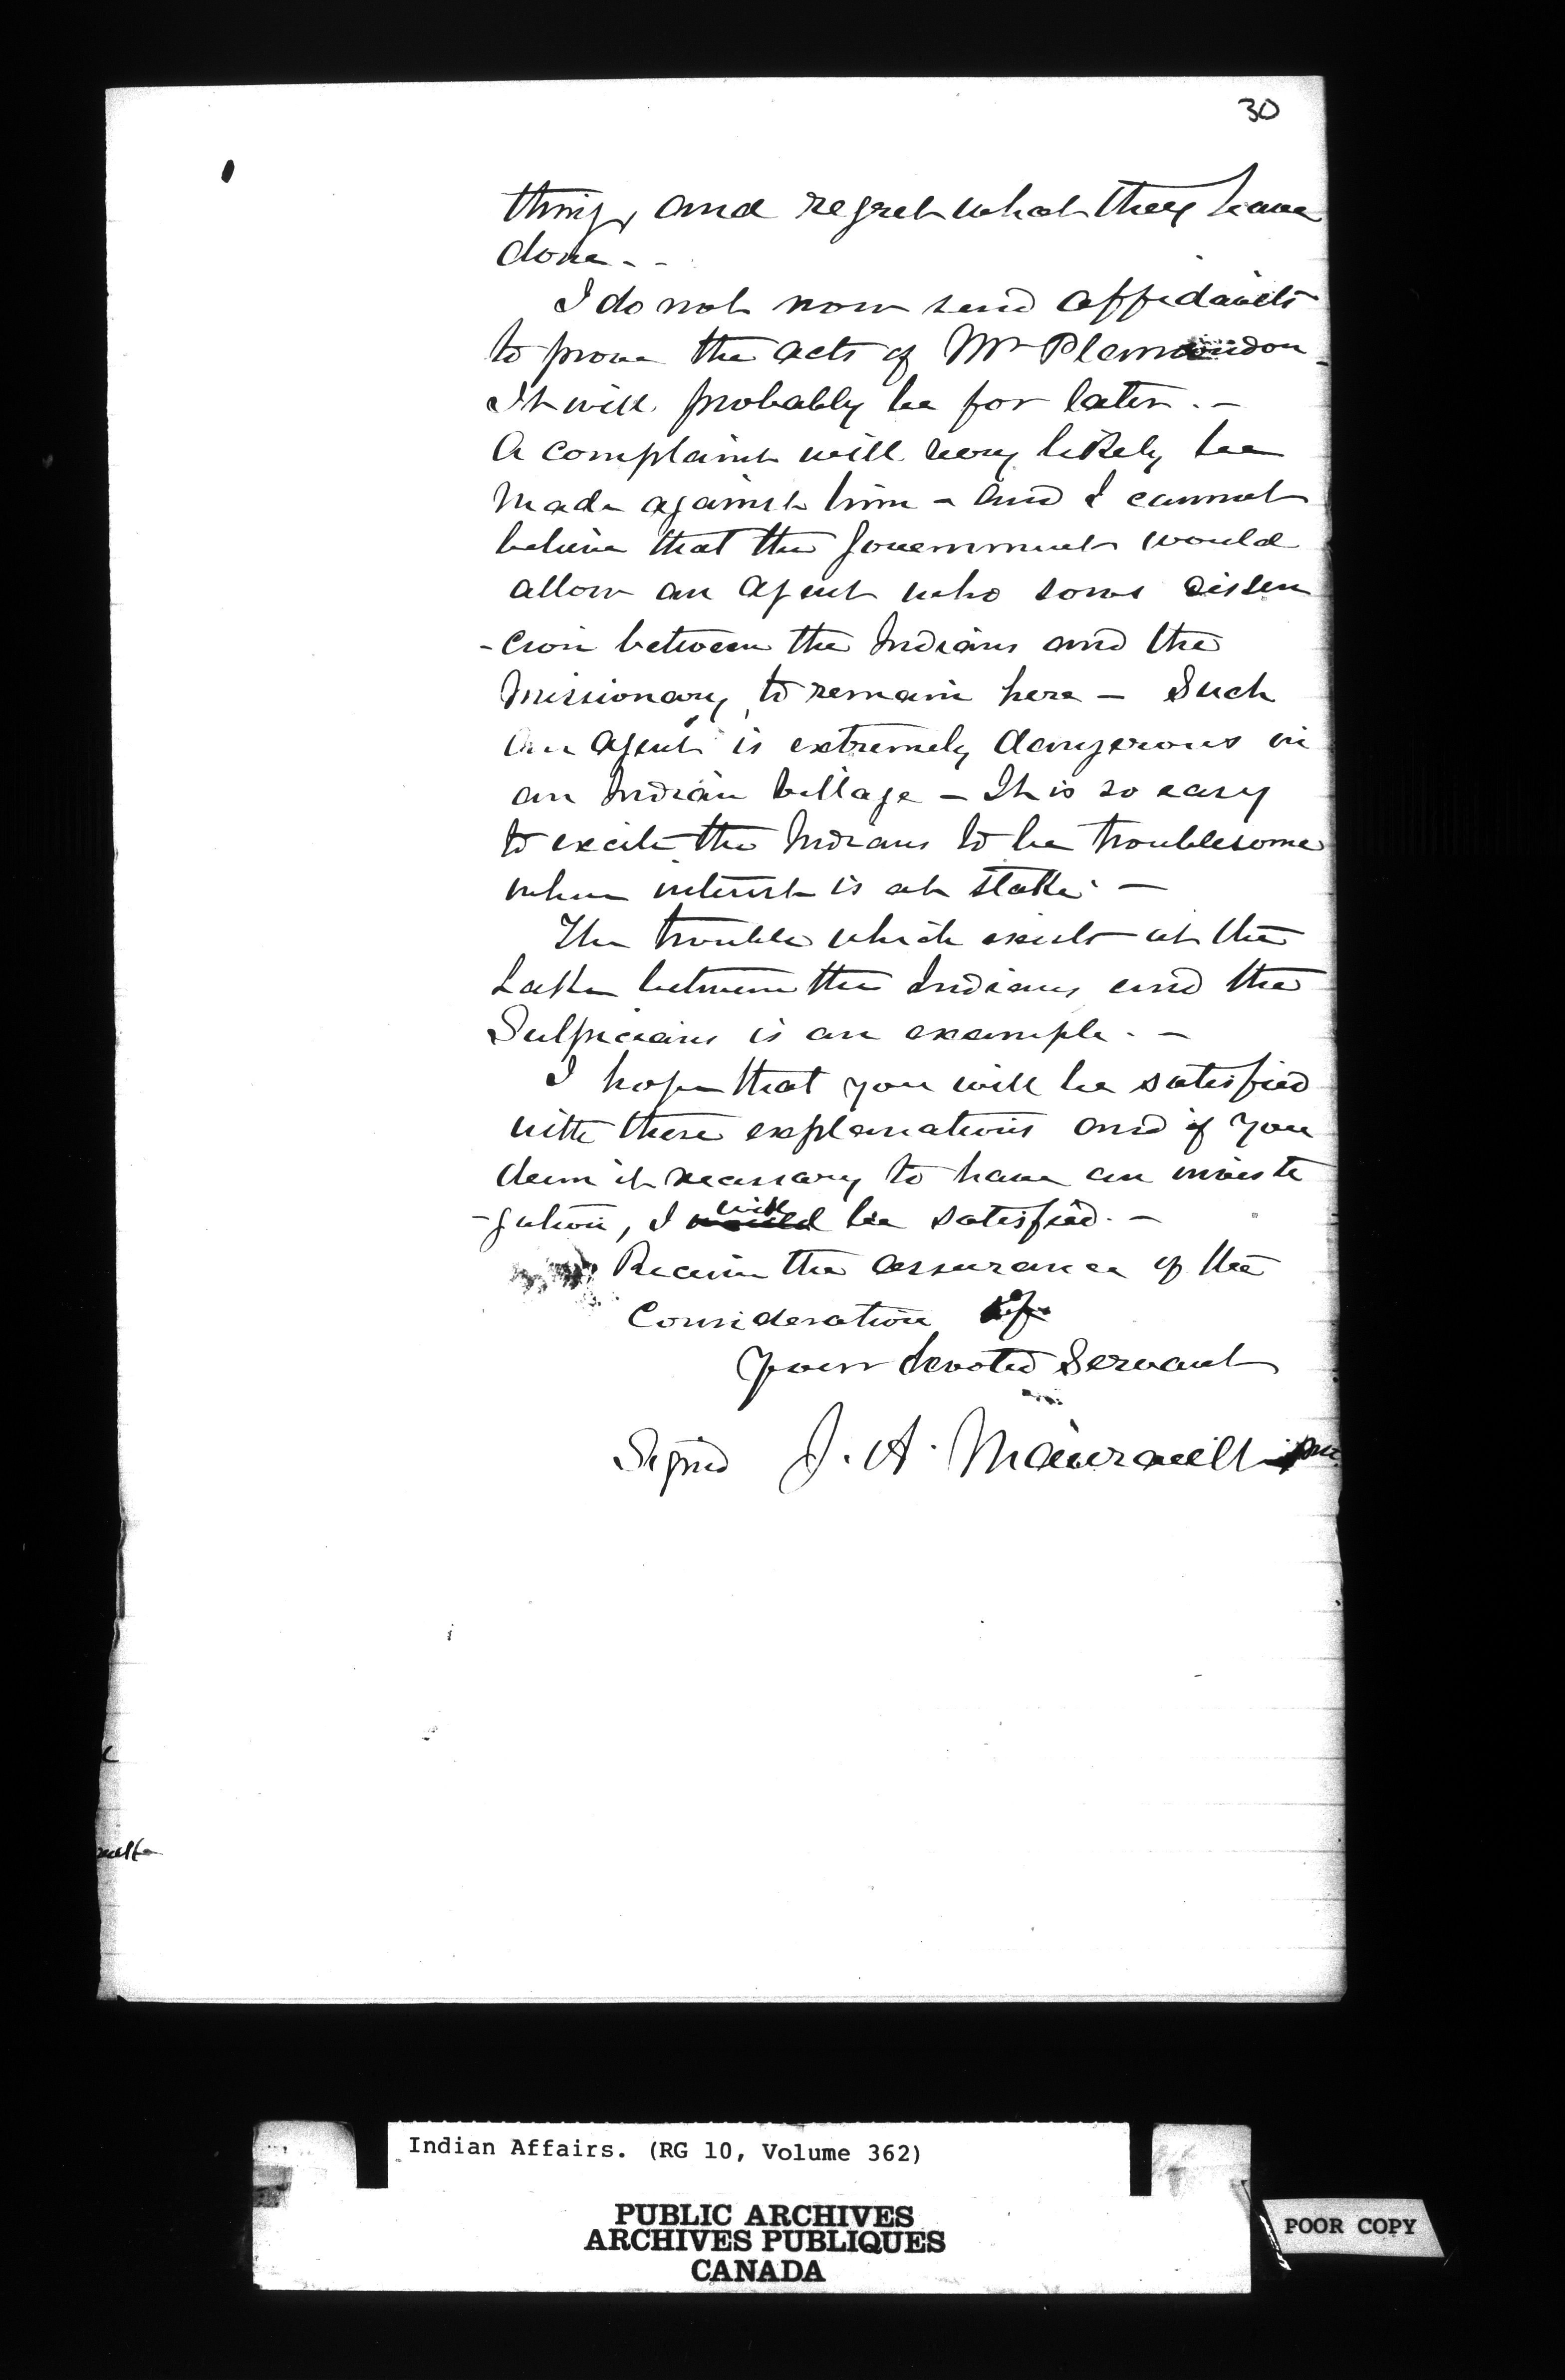 30
things, and regret what they have
done - -
I do not now send affidavits
to prove the acts of Mr Plamondon -
It will probably be for later. -
A complaint will very likely be
made against him - and I cannot
believe that the Government would
allow an agent who sows dissen
-cion between the Indians and the
Missionary, to remain here - Such
an agent is extremely dangerous in
an Indian Village - It is so easy
to excite the Indians to be troublesome
when interest is at stake. -
The trouble which exists at the
Lake between the Indians and the
Sulpicians is an example. -
I hope that you will be satisfied
with these explanations and if you
deem it necessary to have an investi
-gation, I will be satisfied. -
Receive the assurance of the
Consideration of
Your devoted Servant
Signed J. A. Mainville
Indian Affairs. (RG 10, Volume 362)
PUBLIC ARCHIVES
ARCHIVES PUBLIQUES
CANADA
POOR COPY